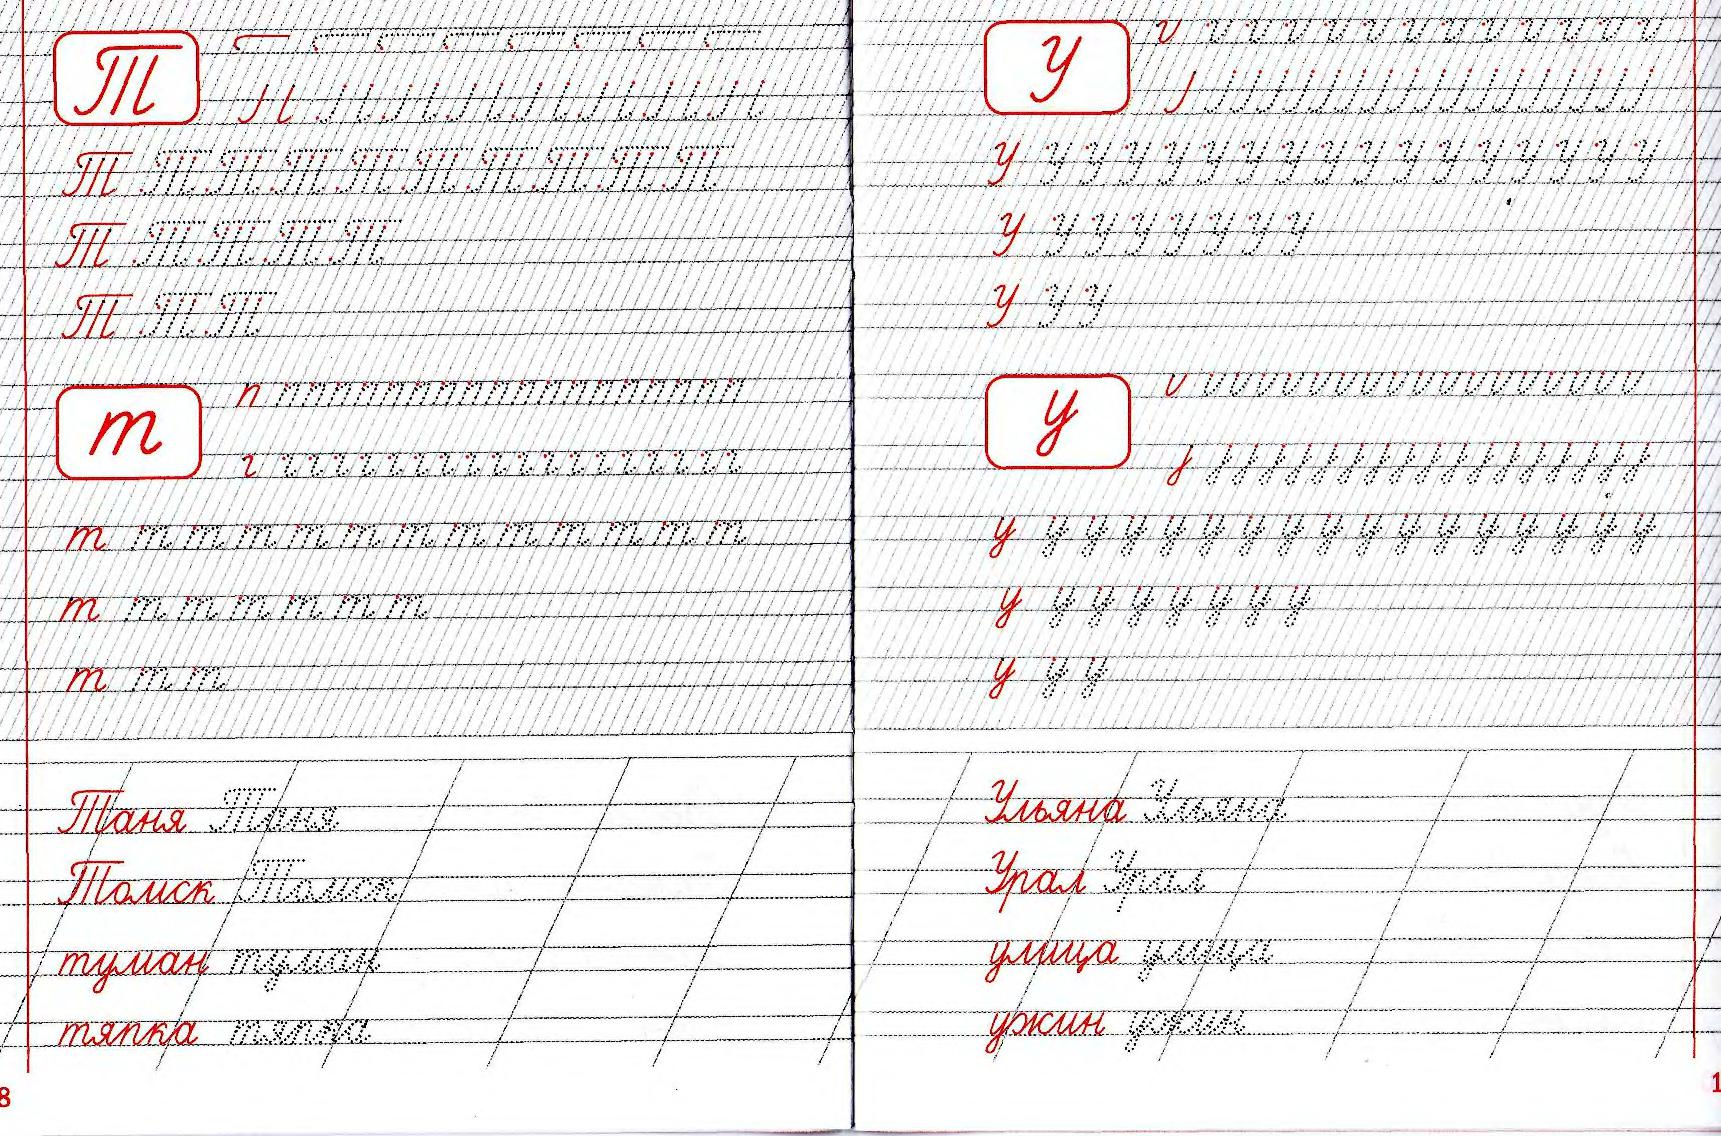 Т
Т Т Т Т Т Т Т Т Т Т
Т Т Т Т Т
Т Т Т
т
т т т т т т т т т т т т т
т т т т т т т
т т т
Таня Таня
Томск Томск
туман туман
тяпка тяпка
8
У
У У У У У У У У У У У У У У У У У
У У У У У У У У
У У У
у
у у у у у у у у у у у у у у у у у
у у у у у у у у
у у у
Ульяна Ульяна
Урал Урал
улица улица
ужин ужин
1